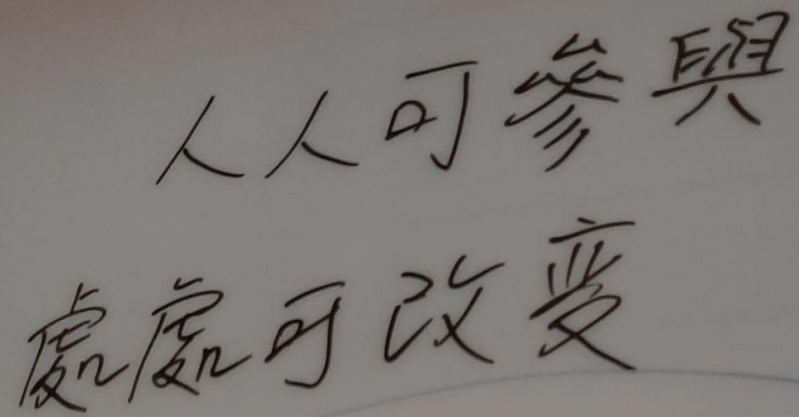 人人可參與
處處可改变